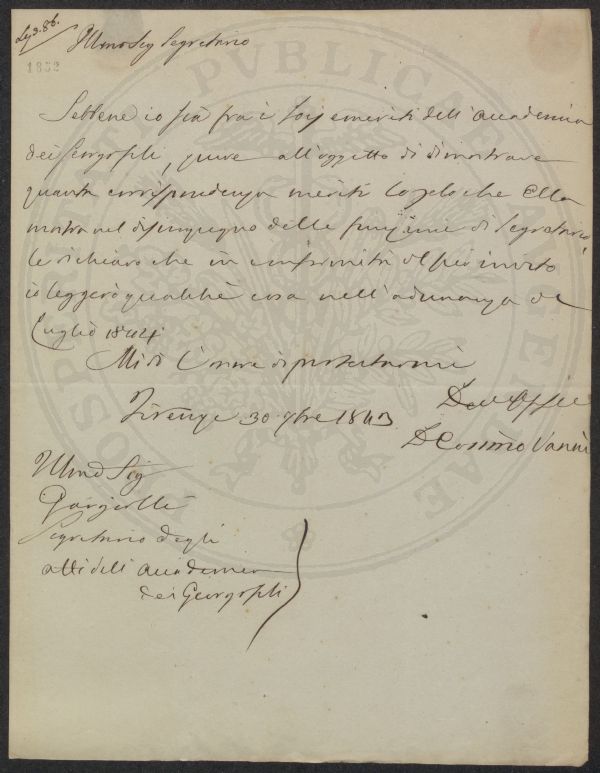 Illmo Sig Segretario
1832
Sebbene io sia fra i Socj emeriti dell'Accademia
dei Georgofili, pure all'oggetto di dimostrare
quanta corrispondenza meriti lo zelo che Ella
mostra nel disimpegno delle funzioni di Segretario,
le dichiaro che in conformità del suo invito
io leggerò qualche cosa nell'adunanza di
Luglio 1844.
Mi dò l'onore di protestarmi
Firenze 30 9bre 1843
D Cosimo Vanni
Illmo Sig
Segretario degli
atti dell Accademia
dei Georgofili
PROSPERITATI PUBLICAE AUGENDAE